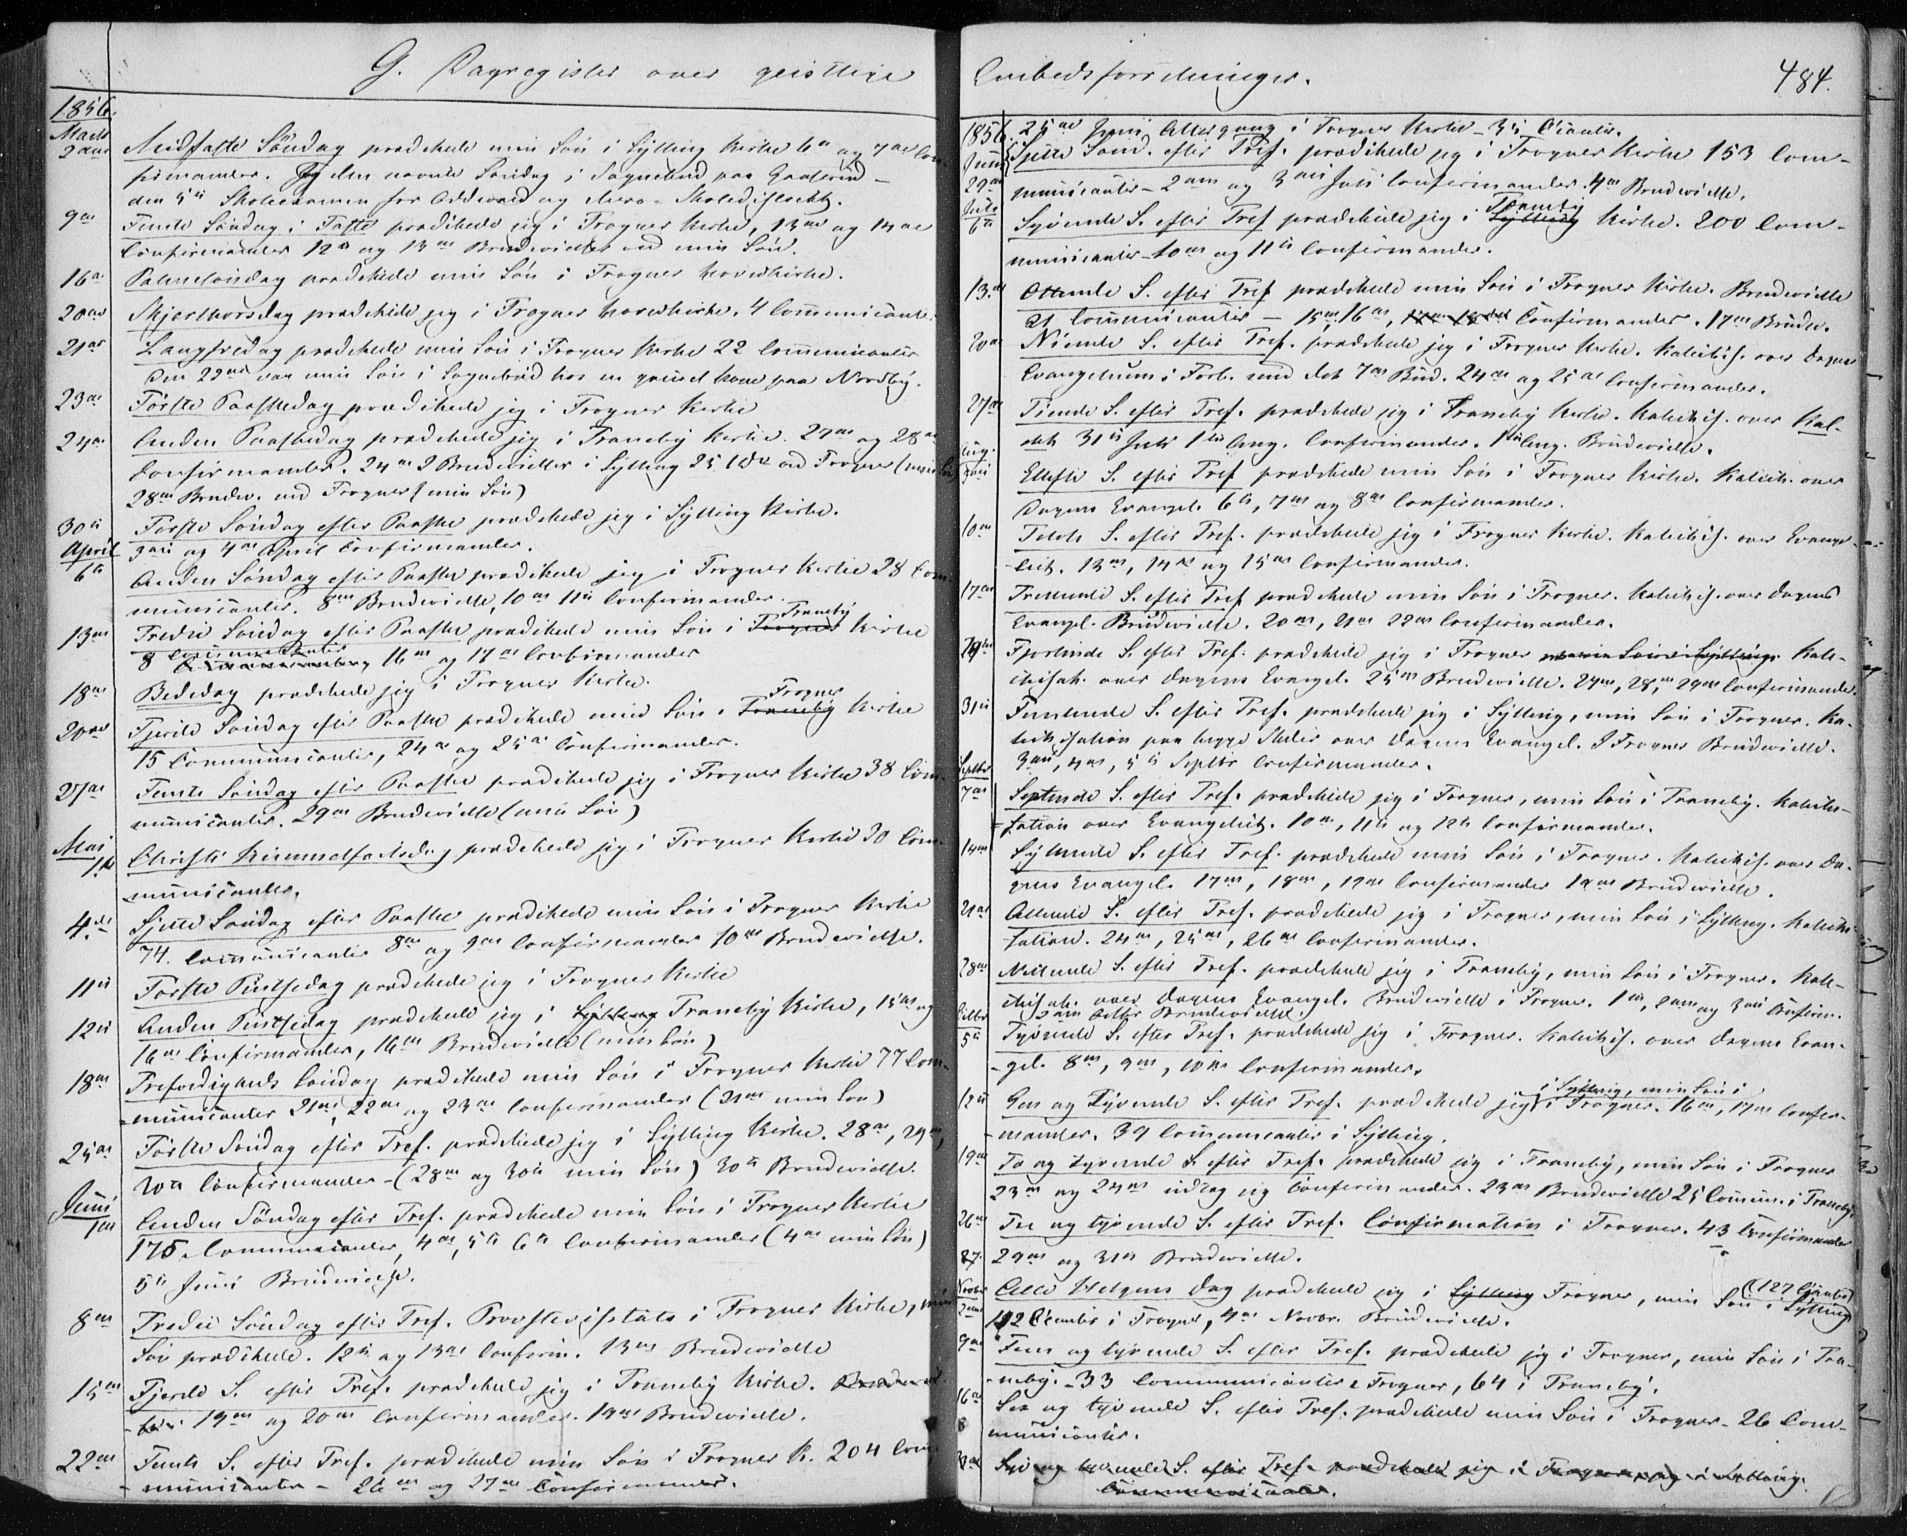 G. Dagregister over geistlige
1856.
Marts
2den Midfaste Søndag prædikede min Søn i Sylling Kirke 6te og 7de Con-
firmander. Jeg den nævnte Søndag i Sognebud paa
den 5te Skolecommission for Oddevald og
9de Femte Søndag i Faste prædikede jeg i Trogner Kirke, 13de og 14de
Confirmander 12te og 13de Brudevielse ved min Søn.
16de Palmesøndag prædikede min Søn i Trogner Hovedkirke.
20de Skjærthorsdag prædikede jeg i Trogner Hovedkirke. 4 Communicanter.
21de Langfredag prædikede min Søn i Trogner Kirke 22 Communicanter
Den 22de var min Søn i Sognebud hos en gammel Kone paa Nordby.
23de Første Paaskedag prædikede jeg i Trogner Kirke
24de Anden Paaskedag prædikede jeg i Traneby Kirke. 27de og 28de
Confirmander. 24de 2 Brudevielser i Sylling 25 ved Trogner (min Søn)
28de Brudev. ved Trogner (min Søn)
30te Første Søndag efter Paaske prædikede jeg i Sylling Kirke.
April 3die og 4de April Confirmander.
6te Anden Søndag efter Paaske prædikede jeg i Trogner Kirke 28 Com-
municanter. 8de Brudevielse, 10de 11te Confirmander.
13de Tredie Søndag efter Paaske prædikede min Søn i Traneby Kirke
8 Communicanter 16de og 17de Confirmander
18de Bededag prædikede jeg i Trogner Kirke.
20de Fjerde Søndag efter Paaske prædikede min Søn i Trogner Kirke
15 Communicanter, 24de og 25de Confirmander.
27de Femte Søndag efter Paaske prædikede jeg i Trogner Kirke 38 Com-
municanter. 29de Brudevielse (min Søn)
Mai
1ste Christi Himmelfartsdag prædikede jeg i Trogner Kirke 30 Com-
municanter.
4de Sjette Søndag efter Paaske prædikede min Søn i Trogner Kirke
74. Communicanter 8de og 9de Confirmander 10de Brudevielse.
11te Første Pintsedag prædikede jeg i Trogner Kirke
12te Anden Pintsedag prædikede jeg i Sylling Traneby Kirke, 15de og
16de Confirmander, 16de Brudevielse (min Søn)
18de Trefoldigheds Søndag prædikede min Søn i Trogner Kirke 77 Com-
municanter 21de, 22de og 23de Confirmander (21de min Søn)
25de Første Søndag efter Tref. prædikede jeg i Sylling Kirke. 28de, 29de,
30te Confirmander - (28de og 30te min Søn) 30te Brudevielse.
Juni
1ste Anden Søndag efter Tref. prædikede min Søn i Trogner Kirke
175. Communicanter, 4de, 5te 6te Confirmander (4de min Søn)
5te Juni Brudevielse.
8de Tredie Søndag efter Tref. Provstevisitats i Trogner Kirke, min
Søn prædikede. 12te og 13de Confirm. 13de Brudevielse
15de Fjerde S. efter Tref. prædikede jeg i Traneby Kirke.
19de og 20de Confirmander. 19de Brudevielse.
22de Femte S. efter Tref. prædikede min Søn i Trogner K. 204 Com-
municanter - 26de og 27de Confirmander.
Embedsforretninger.
484.
1856. 25de Juni Altergang i Trogner Kirke - 35 C.
Juni Sjette Sønd. efter Tref. prædikede jeg i Trogner Kirke 153 Com-
29de municanter - 2den og 3die Juli Confirmander. 4de Brudevielse.
Juli
6te Syvende S. efter Tref prædikede jeg i Sylling Traneby Kirke. 200 Com-
municanter - 10de og 11te Confirmander.
13de Ottende S. efter Tref prædikede min Søn i Trogner Kirke. Brudevielse
21 Communicanter - 15de, 16de, Confirmander. 17de Brudv.
20de Niende S. efter Tref. prædikede jeg i Trogner Kirke. Katechis. over Dagens
Evangelium i Forb. med det 7de Bud. 24de og 25de Confirmander.
27de Tiende S. efter Tref. prædikede jeg i Traneby Kirke. Katechis. over
31te Juli 1ste Aug. Confirmander. 1ste Aug. Brudevielse.
Aug.
3die Ellefte S. efter Tref prædikede min Søn i Trogner Kirke. Katech. over
Dagens Evangel. 6te, 7de og 8de Confirmander.
10de Tolvte S. efter Tref. prædikede jeg i Trogner Kirke. Katechis. over Evange-
liet. 13de, 14de og 15de Confirmander.
17de Trettende S. efter Tref prædikede min Søn i Trogner. Katechis. over Dagens
Evangel. Brudevielse. 20de, 21de 22de Confirmander.
Fjortende S. efter Tref. prædikede jeg i Trogner Kate-
chisat. over Dagens Evangel. 25de Brudevielse. 27de, 28de, 29de Confirmander.
31te Femtende S. efter Tref. prædikede jeg i Sylling, min Søn i Trogner. Ka-
techisation paa begge Steder over Dagens Evangel. I Trogner Brudevielse.
Septbr 3die, 4de, 5te Septbr Confirmander.
7de Sextende S. efter Tref. prædikede jeg i Trogner, min Søn i Traneby. Katechi-
sation over Evangeliet. 10de, 11te og 12te Confirmander.
14de Syttende S. efter Tref. prædikede min Søn i Trogner. Katechis. over Da-
gens Evangel. 17de, 18de, 19de Confirmander 19de Brudevielse.
21de Attende S. efter Tref. prædikede jeg i Trogner, min Søn i Sylling. Katechi-
sation. 24de, 25de, 26de Confirmander.
28de Nittende S. efter Tref. prædikede jeg i Traneby, min Søn i Trogner. Kate-
chisat. over Dagens Evangel. Brudevielse i Trogner. 1ste, 2den og 3die Confirm.
Octbr 3die Octbr Brudevielse.
5te Tyvende S. efter Tref. prædikede jeg i Trogner. Katechis. over Dagens Evan-
gel. 8de, 9de, 10de Confirmander.
12te Een og Tyvende S. efter Tref. prædikede jeg i Sylling, min Søn i Trogner. 16de, 17de Confir-
mander. 39 Communicanter i Sylling.
19de To og tyvende S. efter Tref. prædikede jeg i Traneby, min Søn i Trogner
23de og 24de udtog jeg Confirmander. 23de Brudevielse 25 Commun. i Traneby.
26de Tre og tyvende S. efter Tref. Confirmation i Trogner. 43 Confirmander
29de og 31te Brudevielse.
Novbr Alle Helgens Dag prædikede jeg i Sylling Trogner, min Søn i Sylling (127
2den i Trogner, 4de Novbr. Brudevielse.
9de Fem og tyvende S. efter Tref. prædikede jeg i Trogner, min Søn i Tra-
neby. - 33 Communicanter i Trogner, 64 i Traneby.
16de Sex og tyvende S. efter Tref. prædikede min Søn i Trogner - 26 Com-
municanter.
Syv og tyvende S. efter Tref. prædikede jeg i Trogner, og i Sylling.
Communicanter.